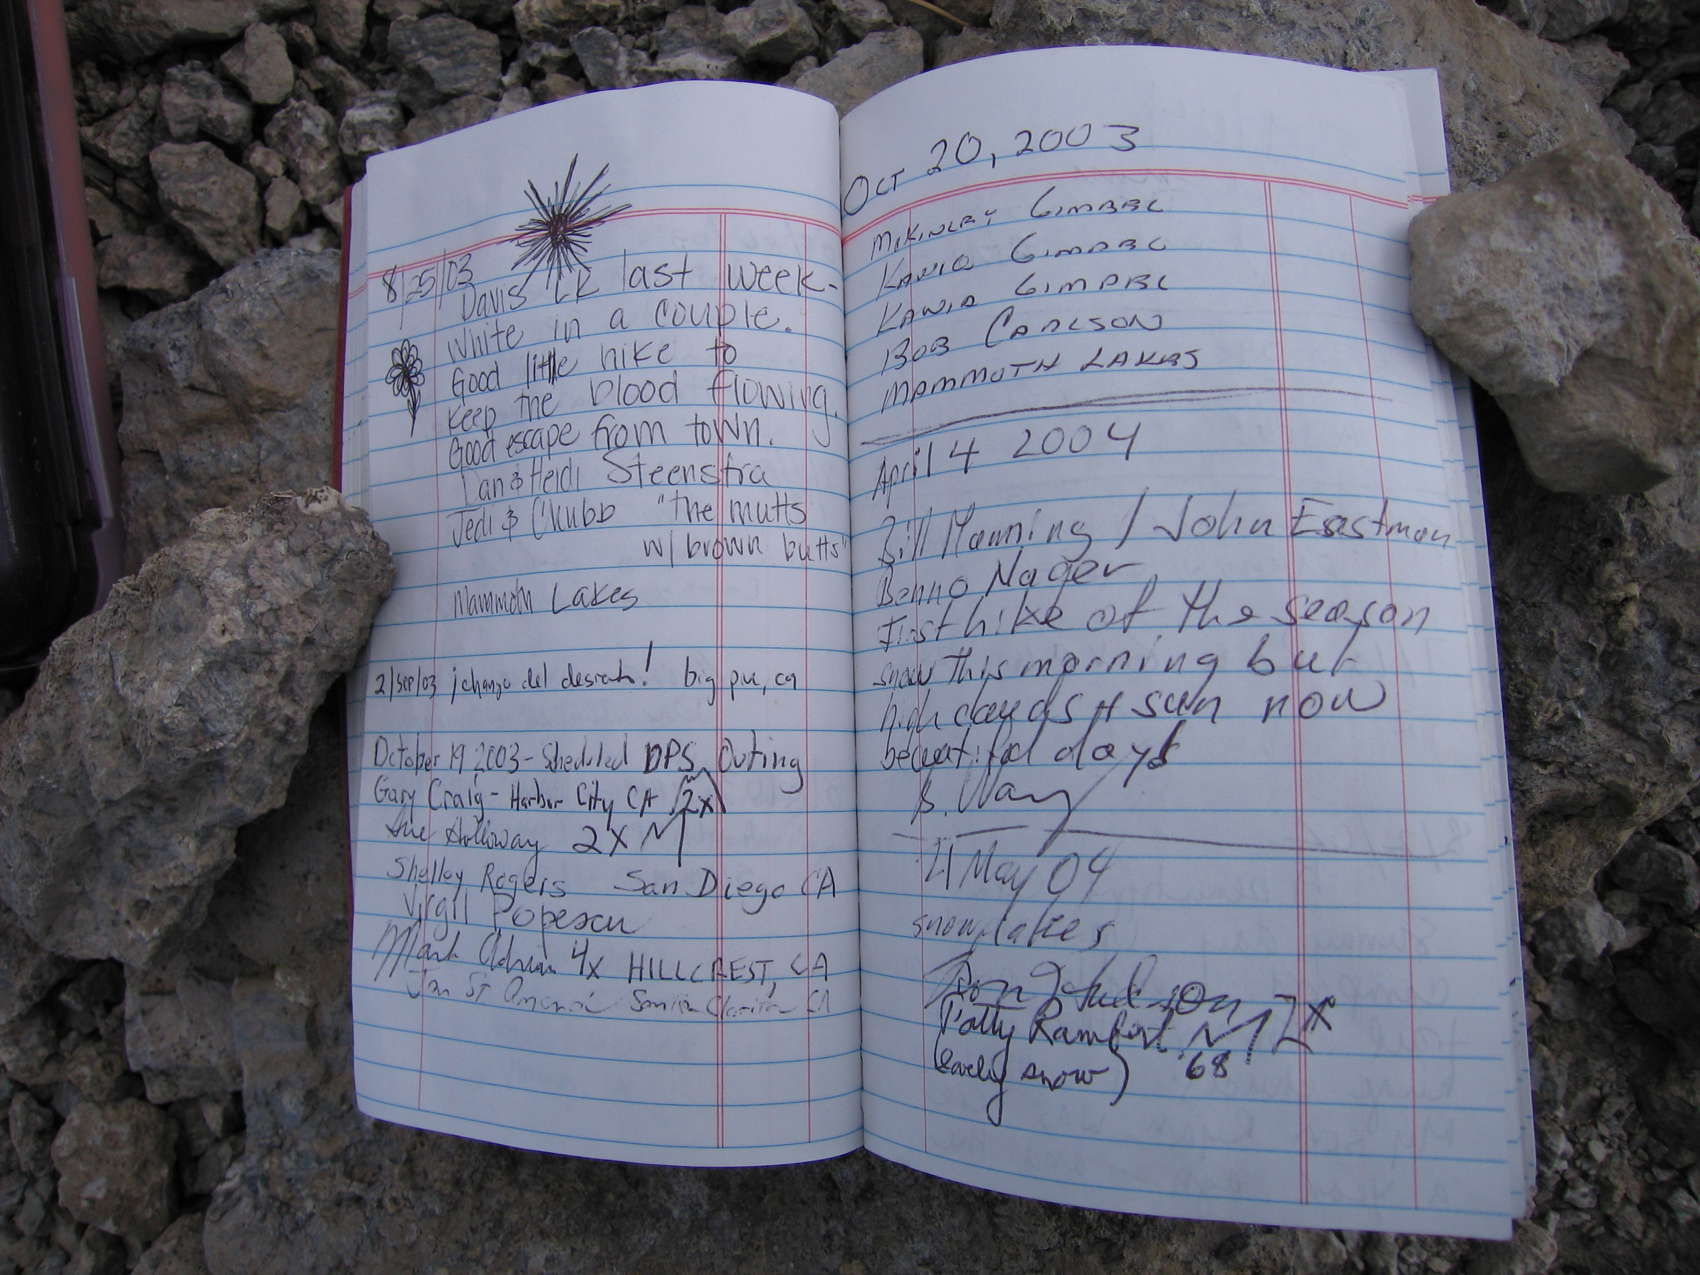 8/25/03
Davis Lk last week-
White in a couple.
Good little hike to
keep the blood flowing.
Good escape from town.
Ian & Heidi Steenstra
Jedi & Chubb "the mutts
w/ brown butts"
Mammoth Lakes
2/sep/03 big pine, ca
October 19 2003 - Scheduled DPS Outing
Gary Craig - Harbor City CA 2x
Sue Holloway 2x
Shelley Rogers San Diego CA
Virgil Popescu
Mark Adrian 4x HILLCREST, CA
Jan St Santa Clarita CA
Oct 20, 2003
McKinley Gimbel
Gimbel
Gimbel
Bob Carlson
Mammoth Lakes
April 4 2004
Bill Manning / John Eastman
Benno Nager
First hike of the season
snow this morning but
high clouds & sun now
beautiful days
21 May 04
snowflakes
Ron Hudson 2x
Patty Rambert '68
(lovely snow)